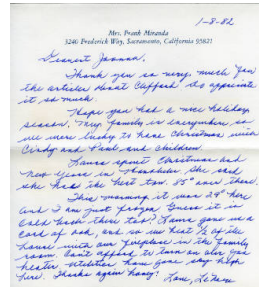 1-8-82
Mrs. Frank Miranda
3240 Frederick Way, Sacramento, California 95821
Dearest Joanna,
Thank you so very much for
the article about Clifford. I appreciate
it so much.
Hope you had a nice holiday
season. My family is everywhere so
we were lucky to have Christmas with
Cindy and Paul and children.
Laura spent Christmas and
New Years in Honolulu. She said
she had the best tan. 85° over there.
This morning it was 29° here
and I am just frozen. Guess it is
cold back there too? Laura gave us a
cord of oak, and so we heat ½ of the
house with our fireplace in the family
room. Can't afford to turn on our
heater utilities have gone sky high
here. Thanks again honey!
Love,